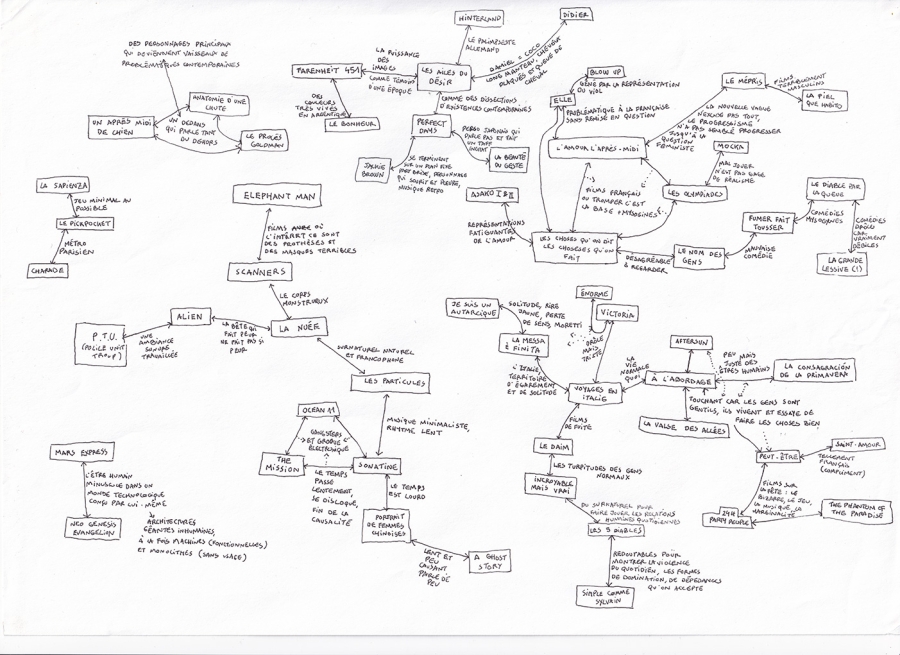 HINTERLAND
DIDIER
LE PALIMPSESTE
ALLEMAND
DAMIEL = COCO
LONG MANTEAU, CHEVEUX
PLAQUÉS ET QUEUE DE
CHEVAL
DES PERSONNAGES PRINCIPAUX
QUI DEVIENNENT VAISSEAUX DE
PROBLÉMATIQUES CONTEMPORAINES
LA PUISSANCE
DES
IMAGES
COMME TÉMOINS
D'UNE ÉPOQUE
FARENHEIT 451
LES AILES DU
DÉSIR
DES
COULEURS
TRÈS VIVES
EN ARGENTIQUE
LE BONHEUR
COMME DES DISSECTIONS
D'EXISTENCES CONTEMPORAINES
PERFECT
DAYS
PERSO JAPONAIS QUI
PARLE PAS ET FAIT
UN TAFF
INGRAT
LA BEAUTÉ
DU GESTE
JACKIE
BROWN
SE TERMINENT
SUR UN PLAN FIXE
PERSONNAGE
QUI SOURIT ET PLEURE,
MUSIQUE RETRO
ANATOMIE D'UNE
CHUTE
UN APRÈS MIDI
DE CHIEN
UN DEDANS
QUI PARLE TANT
DU DEHORS
LE PROCÈS
GOLDMAN
BLOW UP
GÊNÉ PAR LA REPRÉSENTATION
DU VIOL
ELLE
PROBLÉMATIQUE À LA FRANÇAISE
SANS REMISE EN QUESTION
L'AMOUR L'APRÈS-MIDI
LE MÉPRIS
FILMS
TERRIBLEMENT
MASCULINS
LA PIEL
QUE HABITO
LA NOUVELLE VAGUE
N'EXCUSE PAS TOUT,
LE PROGRESSISME
N'A PAS SEMBLÉ PROGRESSER
JUSQU'À LA
QUESTION
FÉMINISTE
MOCKA
MAL JOUER
N'EST PAS GAGE
DE RÉALISME
LES OLYMPIADES
FILMS FRANÇAIS
OÙ TROMPER C'EST
LA BASE
ASAKO I & II
REPRÉSENTATIONS
FATIGUANTES
DE L'AMOUR
LES CHOSES QU'ON DIT
LES CHOSESES QU'ON
FAIT
DÉSAGRÉABLE
À REGARDER
LE NOM DES
GENS
MAUVAISE
COMÉDIE
FUMER FAIT
TOUSSER
LE DIABLE PAR
LA QUEUE
COMÉDIES
MYSOGYNES
COMÉDIES
DRÔLES
CAR
VRAIMENT
DÉBILES
LA GRANDE
LESSIVE (!)
LA SAPIENZA
JEU MINIMAL AU
POSSIBLE
LE PICKPOCKET
MÉTRO
PARISIEN
CHARADE
ELEPHANT MAN
FILMS OÙ
L'INTÉRÊT CE SONT
DES PROTHÈSES ET
DES MASQUES TERRIBLES
SCANNERS
LE CORPS
MONSTRUEUX
ALIEN
LA NUÉE
LA BÊTE QUI
FAIT PEUR
NE FAIT PAS SI
PEUR
P.T.U.
(POLICE UNIT
TROUP)
UNE
AMBIANCE
SONORE
TRAVAILLÉE
SURNATUREL NATUREL
ET FRANCOPHONE
LES PARTICULES
MUSIQUE MINIMALISTE,
RHYTME LENT
OCEAN 11
GANGSTERS
ET GROOVE
ÉLECTRONIQUE
THE
MISSION
SONATINE
LE TEMPS
PASSE
LENTEMENT,
SE DISLOQUE,
FIN DE LA
CAUSALITÉ
LE TEMPS
EST LOURD
PORTRAIT
DE FEMMES
CHINOISES
LENT ET
PEU
CAUSANT
PARLE DE
PEU
A GHOST
STORY
MARS EXPRESS
L'ÊTRE HUMAIN
MINUSCULE DANS UN
MONDE TECHNOLOGIQUE
CONÇU PAR LUI-MÊME
NEO GENESIS
EVANGELION
ARCHITECTURES
GÉANTES INHUMAINES,
À LA FOIS MACHINES (FONCTIONNELLES)
ET MONOLITHES (SANS USAGE)
ÉNORME
VICTORIA
JE SUIS UN
AUTARCIQUE
SOLITUDE, RIRE
JAUNE, PERTE
DE SENS MORETTI
LA MESSA
È FINITA
DRÔLE
MAIS
TRISTE
L'ITALIE,
TERRITOIRE
D'ÉGAREMENT
ET DE SOLITUDE
VOYAGES EN
ITALIE
LA
VIE
NORMALE
QUOI
AFTERSUN
À L'ABORDAGE
PEU
MAIS
JUSTE DES
ÊTRES HUMAINS
LA CONSAGRACIÓN
DE LA PRIMAVERA
TOUCHANT CAR LES GENS SONT
GENTILS, ILS VIVENT ET ESSAYE DE
FAIRE LES CHOSES BIEN
LA VALSE DES ALLÉES
FILMS
DE FUITE
LE DAIM
LES TURPITUDES DES GENS
NORMAUX
INCROYABLE
MAIS VRAI
DU SURNATUREL POUR
FAIRE JOUER LES RELATIONS
HUMAINES QUOTIDIENNES
LES 5 DIABLES
REDOUTABLES POUR
MONTRER LA VIOLENCE
DU QUOTIDIEN, LES FORMES
DE DOMINATION, DE DÉPENDANCES
QU'ON ACCEPTE
SIMPLE COMME
SYLVAIN
PEUT-ÊTRE
SAINT-AMOUR
TELLEMENT
FRANÇAIS
(COMPLIMENT)
FILMS SUR
LA FÊTE : LE
BIZARRE, LE JEU,
LA MUSIQUE, LA
MARGINALITÉ
24H
PARTY PEOPLE
THE PHANTOM OF
THE PARADISE